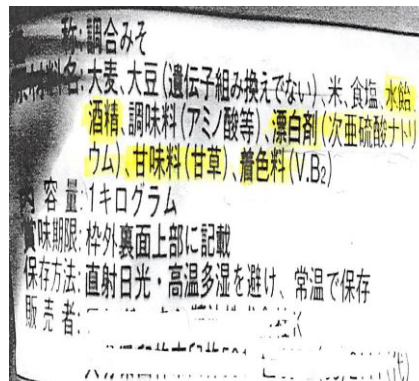 称:調合みそ
原材料名:大麦、大豆(遺伝子組み換えでない)、米、食塩、水飴、
酒精、調味料(アミノ酸等)、漂白剤(次亜硫酸ナトリ
ウム)、甘味料(甘草)、着色料(V.B₂)
内容量:1キログラム
賞味期限:枠外裏面上部に記載
保存方法:直射日光・高温多湿を避け、常温で保存
販売者: